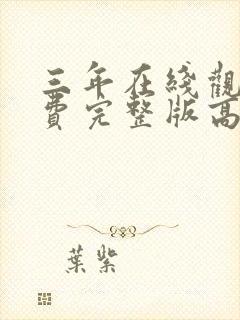 三年在綫觀
費完整版高
葉紫